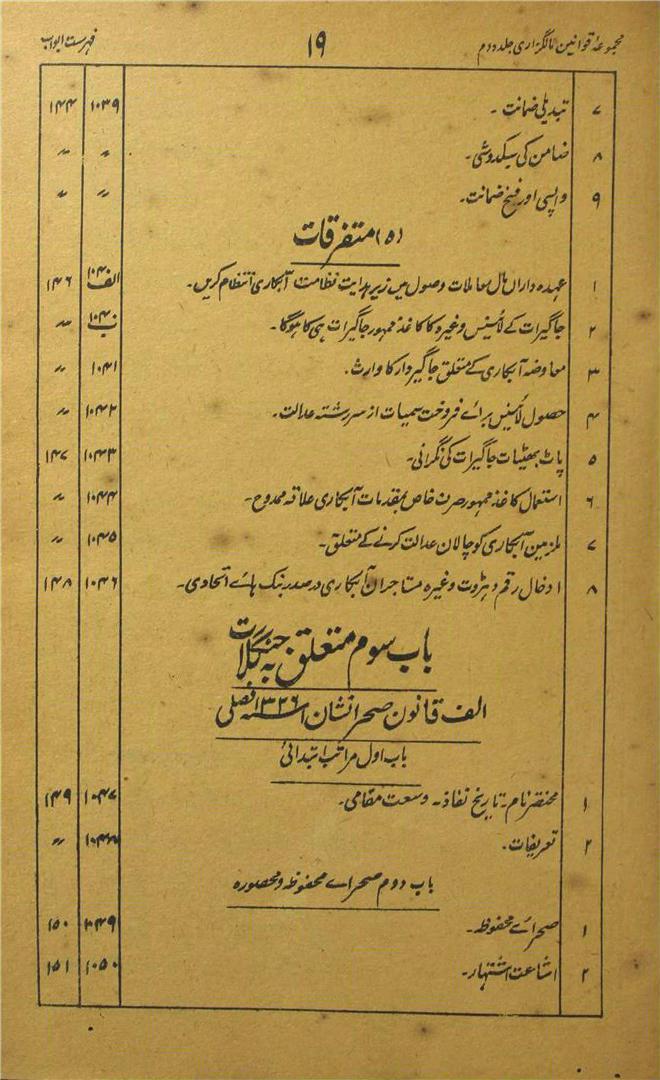 مجموعۂ قوانین مالگزاری جلد دوم ۱۹ فہرست ابواب
۷ تبدیلی ضمانت ۔ ۱۰۳۹ ۱۴۴
۸ ضامن کی سبکدوشی۔ 〃 〃
۹ واپسی اور فسخ ضمانت۔ 〃 〃
(ہ) متفرقات
۱ عہدہ داران مال معاملات وصول میں زیر ہدایت نظامت آبکاری انتظام کریں۔ ۱۰۴۰ الف ۱۴۶
۲ جاگیرات کے لائسنس وغیرہ کا کاغذ ممہور جاگیرات ہی کا ہوگا۔ ۱۰۴۰ ب 〃
۳ معاوضہ آبکاری کے متعلق جاگیردار کا وارث۔ ۱۰۴۱ 〃
۴ حصول لائسنس برائے فروخت سمیات از سررشتہ عدالت۔ ۱۰۴۲ 〃
۵ پاٹ بھٹیات جاگیرات کی نگرانی۔ ۱۰۴۳ ۱۴۷
۶ استعمال کاغذ ممہور صرف خاص بمقدمات آبکاری علاقہ ممدوح۔ ۱۰۴۴ 〃
۷ ملزمین آبکاری کو چالان عدالت کرنے کے متعلق۔ ۱۰۴۵ 〃
۸ ادخال رقم دہڑوت وغیرہ مستاجران آبکاری در صدر بنک ہائے اتحادی۔ ۱۰۴۶ ۱۴۸
باب سوم متعلق بہ جنگلات
الف قانون صحرا نشان ا سنہ ۱۳۲۶ فصلی
باب اول مراتب ابتدائی
۱ مختصر نام۔ تاریخ نفاذ۔ وسعت مقامی۔ ۱۰۴۷ ۱۴۹
۲ تعریفات۔ ۱۰۴۸ 〃
باب دوم صحرائے محفوظہ و محصورہ
۱ صحرائے محفوظہ۔ ۱۰۴۹ ۱۵۰
۲ اشاعت اشتہار۔ ۱۰۵۰ ۱۵۱